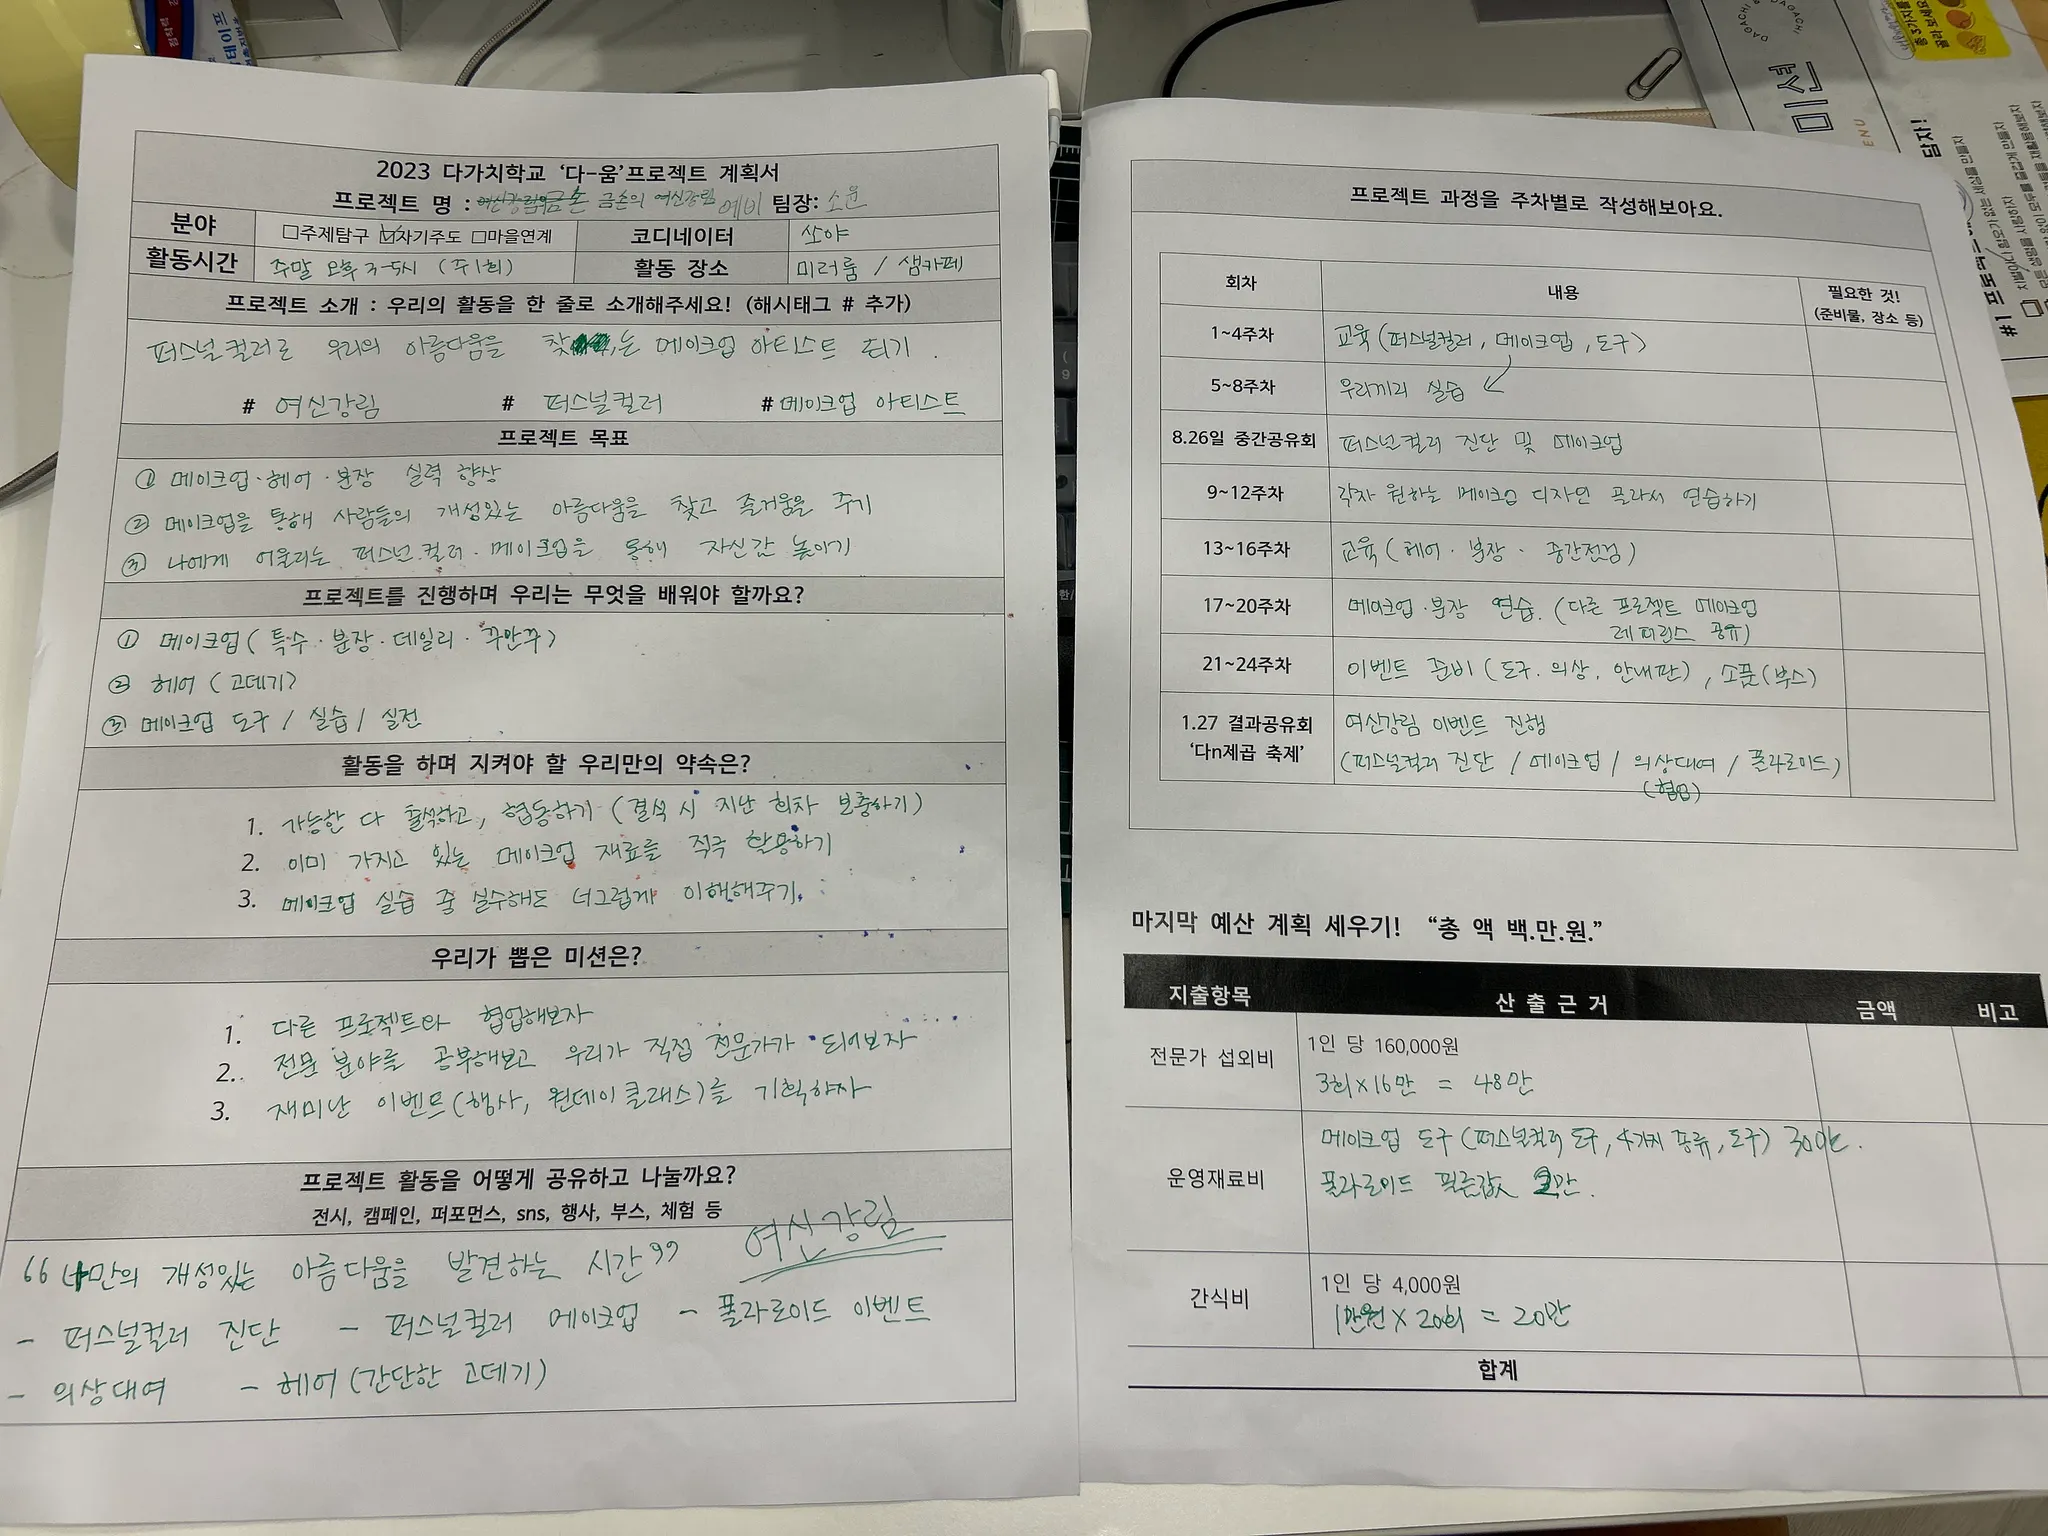 2023 다가치학교 '다-움'프로젝트 계획서
프로젝트 명 : 금촌의 여신강림 예비 팀장: 소윤
분야 □주제탐구 ☑자기주도 □마을연계 코디네이터 쏘야
활동시간 주말 오후 3-5시 (주1회) 활동 장소 미러룸 / 샘카페
프로젝트 소개 : 우리의 활동을 한 줄로 소개해주세요! (해시태그 # 추가)
퍼스널컬러로 우리의 아름다움을 찾는 메이크업 아티스트 되기.
# 여신강림 # 퍼스널컬러 # 메이크업 아티스트
프로젝트 목표
① 메이크업·헤어·분장 실력 향상
② 메이크업을 통해 사람들의 개성있는 아름다움을 찾고 즐거움을 주기
③ 나에게 어울리는 퍼스널컬러·메이크업을 통해 자신감 높이기
프로젝트를 진행하며 우리는 무엇을 배워야 할까요?
① 메이크업 (특수·분장·데일리·꾸안꾸)
② 헤어 (고데기)
③ 메이크업 도구 / 실습 / 실전
활동을 하며 지켜야 할 우리만의 약속은?
1. 가능한 다 출석하고, 협동하기 (결석 시 지난 회차 보충하기)
2. 이미 가지고 있는 메이크업 재료를 적극 활용하기
3. 메이크업 실습 중 실수해도 너그럽게 이해해주기.
우리가 뽑은 미션은?
1. 다른 프로젝트와 협업해보자
2. 전문 분야를 공부해보고 우리가 직접 전문가가 되어보자
3. 재미난 이벤트(행사, 원데이클래스)를 기획하자
프로젝트 활동을 어떻게 공유하고 나눌까요?
전시, 캠페인, 퍼포먼스, sns, 행사, 부스, 체험 등
여신강림
"나만의 개성있는 아름다움을 발견하는 시간"
- 퍼스널컬러 진단 - 퍼스널컬러 메이크업 - 폴라로이드 이벤트
- 의상대여 - 헤어 (간단한 고데기)
프로젝트 과정을 주차별로 작성해보아요.
회차 내용 필요한 것!
(준비물, 장소 등)
1~4주차 교육 (퍼스널컬러, 메이크업, 도구)
5~8주차 우리끼리 실습
8.26일 중간공유회 퍼스널컬러 진단 및 메이크업
9~12주차 각자 원하는 메이크업 디자인 골라서 연습하기
13~16주차 교육 (헤어·분장·중간점검)
17~20주차 메이크업·분장 연습. (다른 프로젝트 메이크업
레퍼런스 공유)
21~24주차 이벤트 준비 (도구. 의상. 안내판), 소품(부스)
1.27 결과공유회 여신강림 이벤트 진행
'다n제곱 축제' (퍼스널컬러 진단 / 메이크업 / 의상대여 / 폴라로이드)
(협업)
마지막 예산 계획 세우기! "총 액 백.만.원."
지출항목 산 출 근 거 금액 비고
전문가 섭외비 1인 당 160,000원
3회×16만 = 48만
운영재료비 메이크업 도구 (퍼스널컬러 도구, 4가지 종류, 도구) 30만.
폴라로이드 필름값 2만.
간식비 1인 당 4,000원
1만원 × 20회 = 20만
합계
DAGACHI
미션
ENU
담자!